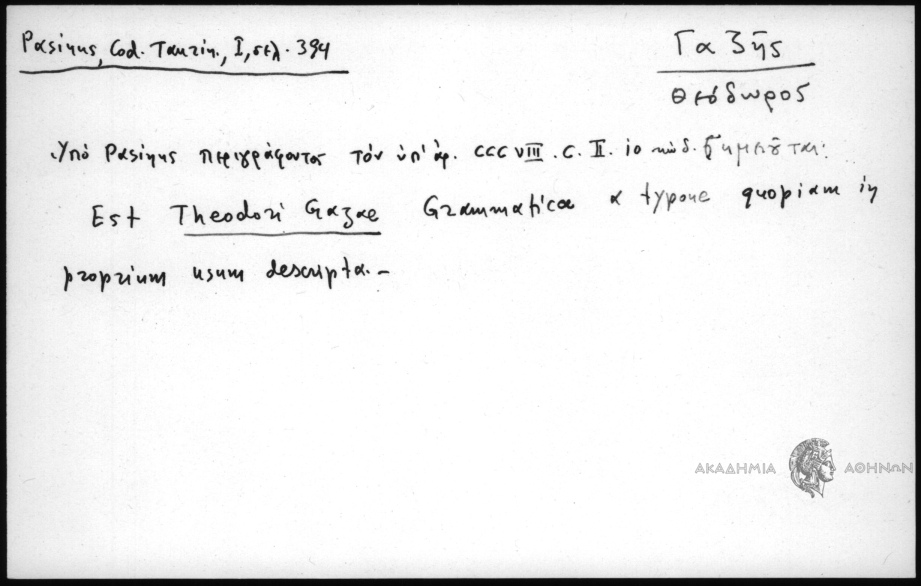 Pasinus, Cod. Taurin., I, σελ. 394
Γαζῆς
Θεόδωρος
Ὑπό Pasinus περιγράφοντος τόν ὑπ' ἀρ. CCCVIII. C. II. 10 κώδ. σημειοῦται:
Est Theodori Gazae Grammatica a typone quopiam in
proprium usum descripta.-
ΑΚΑΔΗΜΙΑ ΑΘΗΝΩΝ